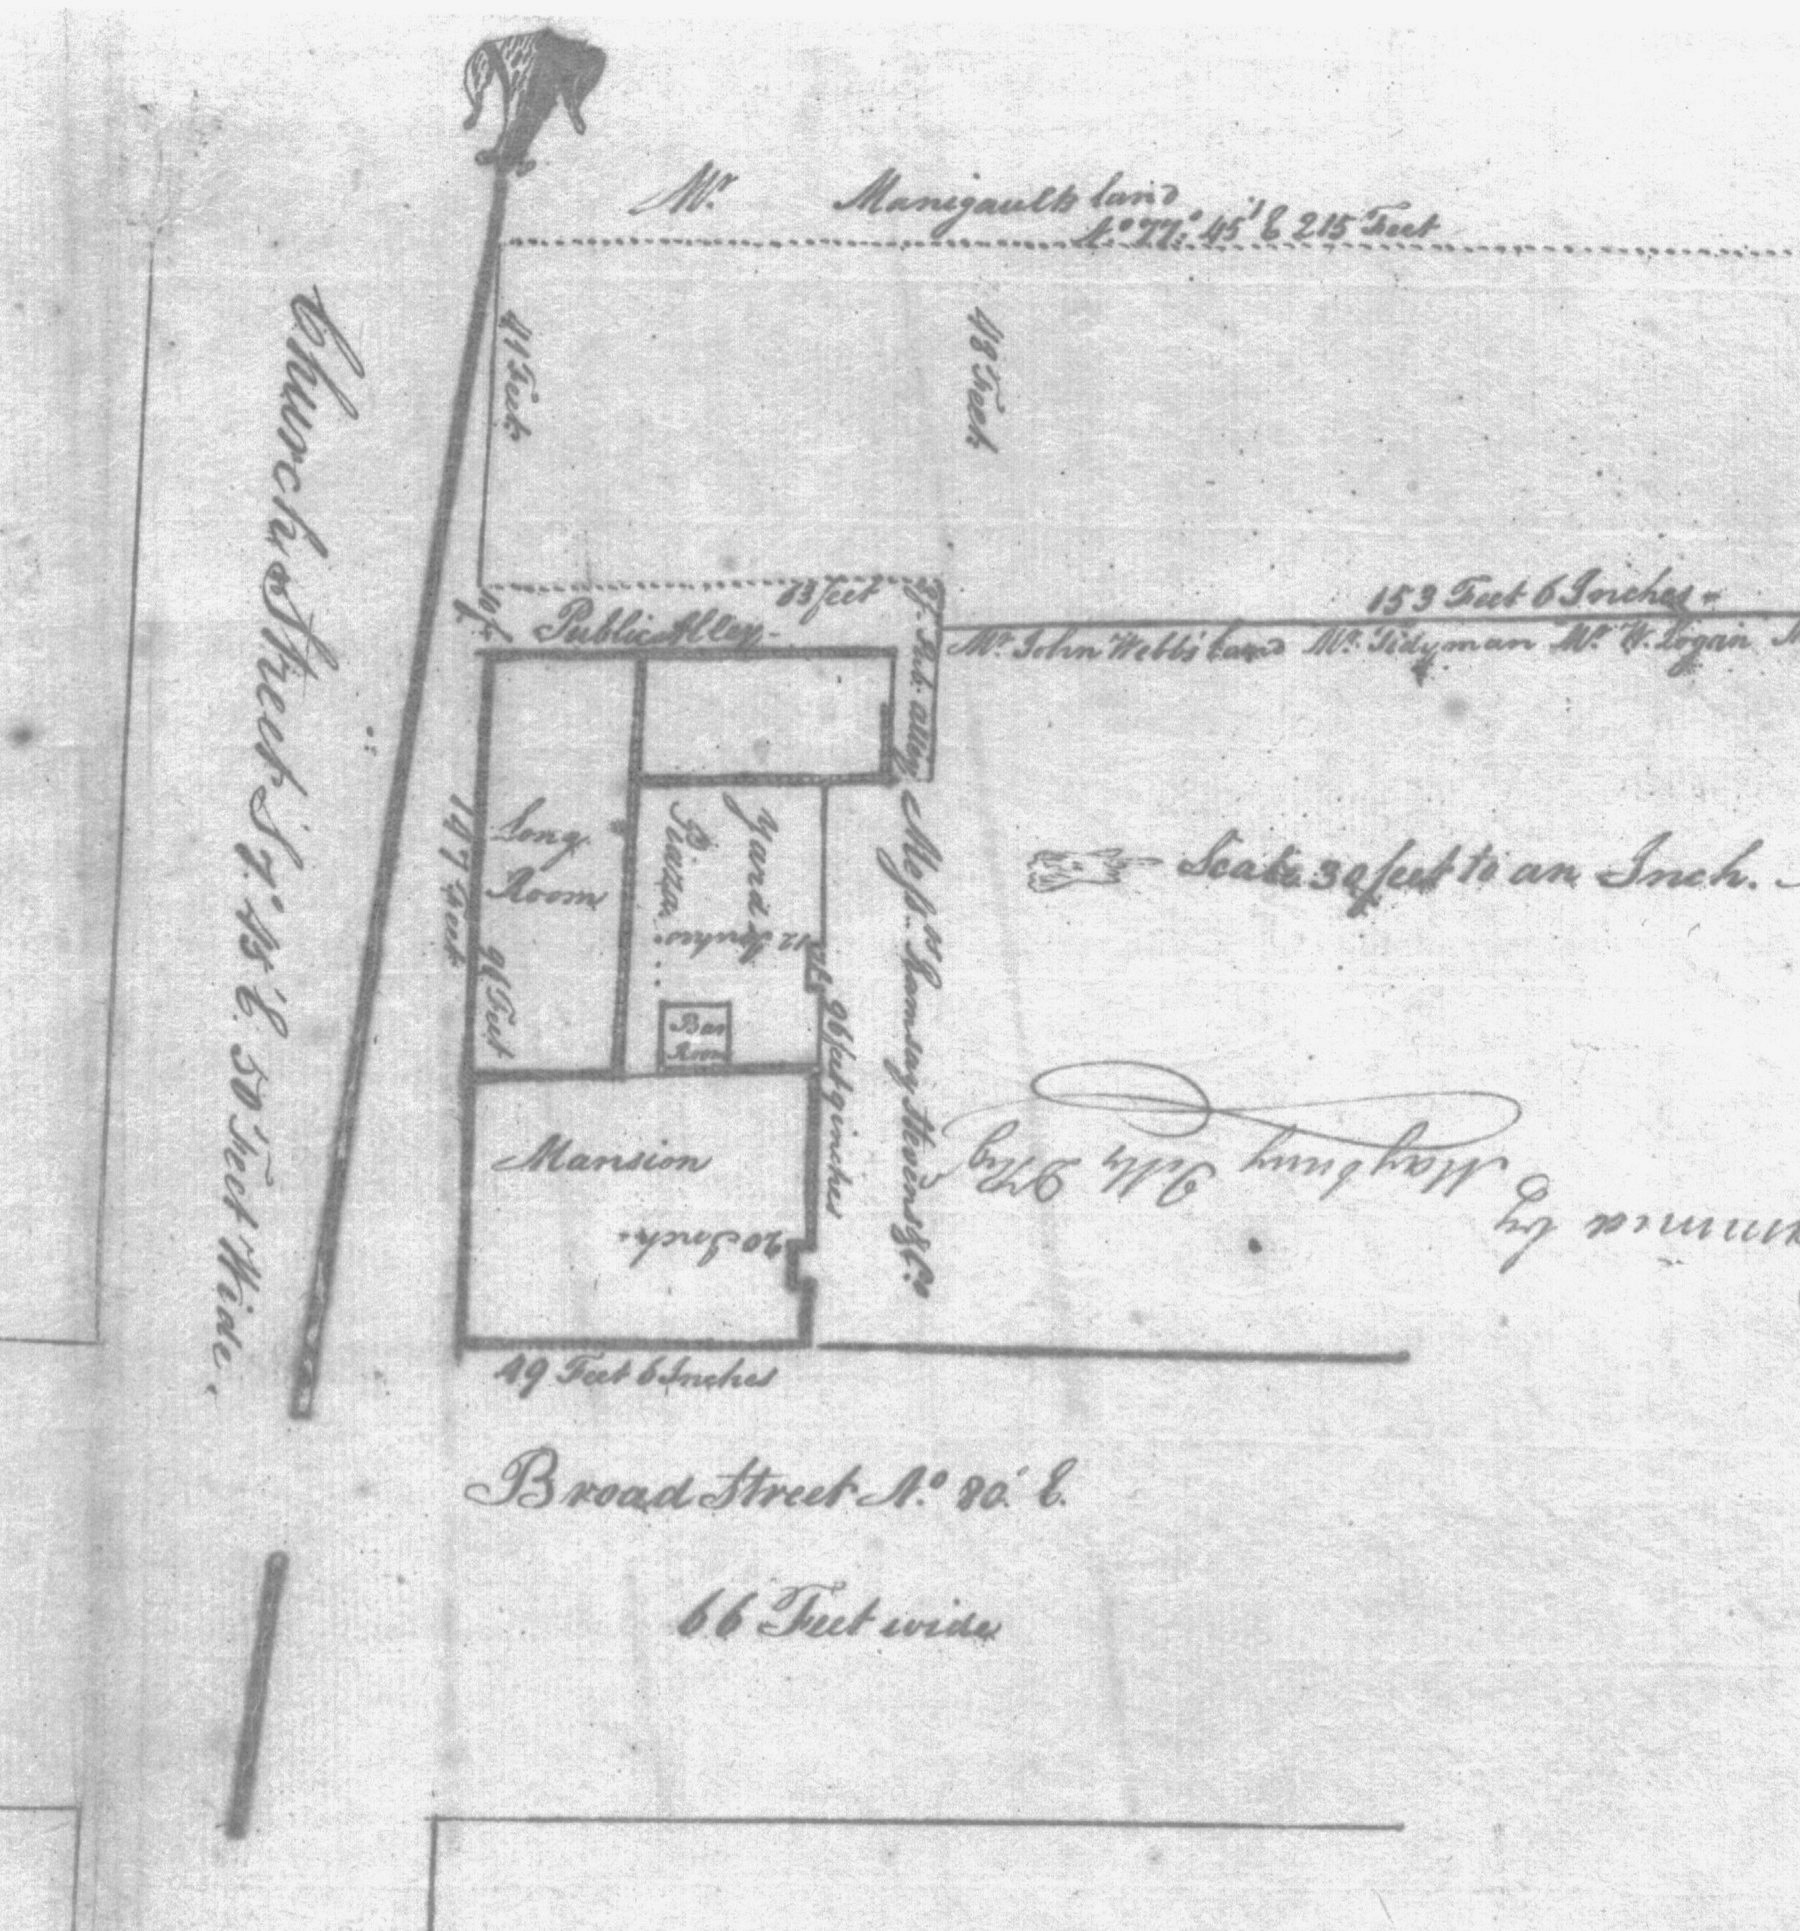 Mr. Manigault's land
No. 77° 45' E 215 Feet
41 Feet
48 Feet
Church Street
50 Feet Wide.
63 feet
10 f.
Public Alley
153 Feet 6 Inches
Mr. John Webb's Land Mr. Tidyman Mr. W. Logan
Pub. alley
147 Feet
Long
Room
96 Feet
Piaza
Yard
12 Inches
Bar
Room
96 feet 9 inches
Messrs. Ramsay Stevens & Co
Scale 30 feet to an Inch.
Mansion
20 Inch.
49 Feet 6 Inches
by
Broad Street No. 80. E.
66 Feet wide